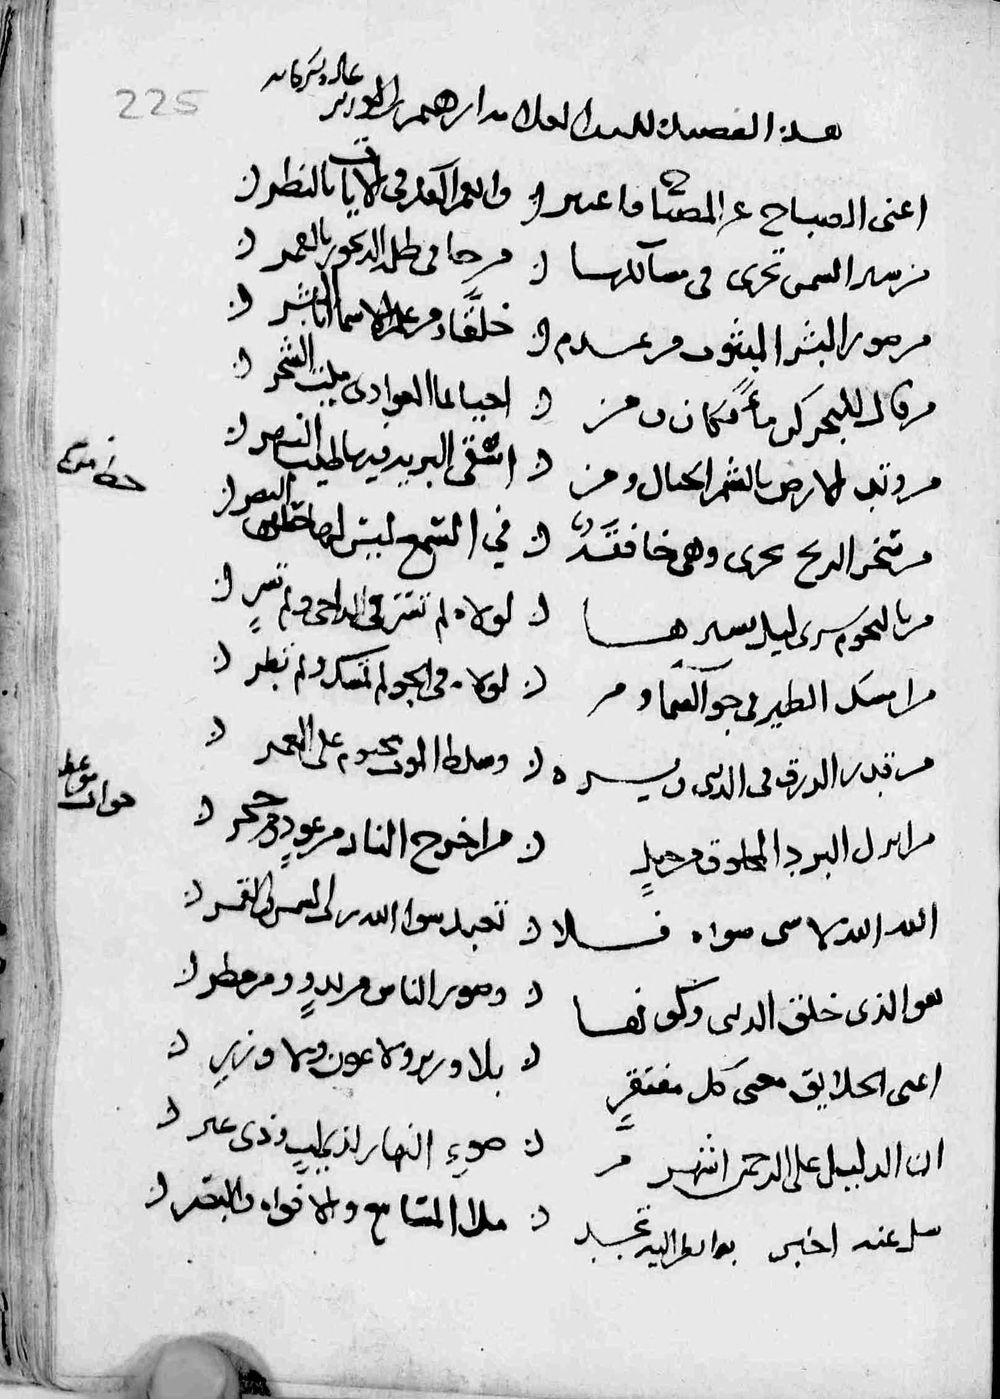 225
هذه القصيدة للسيد العلامة ابرهيم الوزير
اغنى الصباح عن المصباح فاعتبر وانعم الفكر في الايات بالنظر
من سير الشمس تجرى في مسالكها من جا في ظلم الديجور بالقمر
من صور البشر المبثوث من عدم خلقا ومن علم الاسما للبشر
من قال للبحر كن ماً فكان ومن احيا بما الغوادى ميت الشجر
من وتد الارض بالشم الجبال ومن اسقى البرية فيها طيب
من سخر الريح تجرى وهي خافقة في السمع ليس لها البصر
من بالنجوم سرى ليلا يسيرها لولاه لم تستتر في الداجى ولم تسر
من امسك الطير في جو السما ومن لولاه في الجو لم تمسك ولم تطر
من قدر الرزق في الدنيا ويسره وسلط الموت محتوم على العمر
من انزل البرد المخلوق من جبل من اخرج النار من عود ومن حجر
الله الله لا شى سواه فلا تعبد سوا الله رب الشمس والقمر
هو الذى خلق الدنيا وكونها وصور الناس من بدو ومن حضر
اغنى الخلايق مغنى كل مفتقر بلا وزير ولا عون ولا وزر
ان الدليل على الرحمن اشهر من ضوء النهار لذى لب وذى
سل عنه اخبر به وانظر اليه تجد ملا المسامع والافواه والبصر